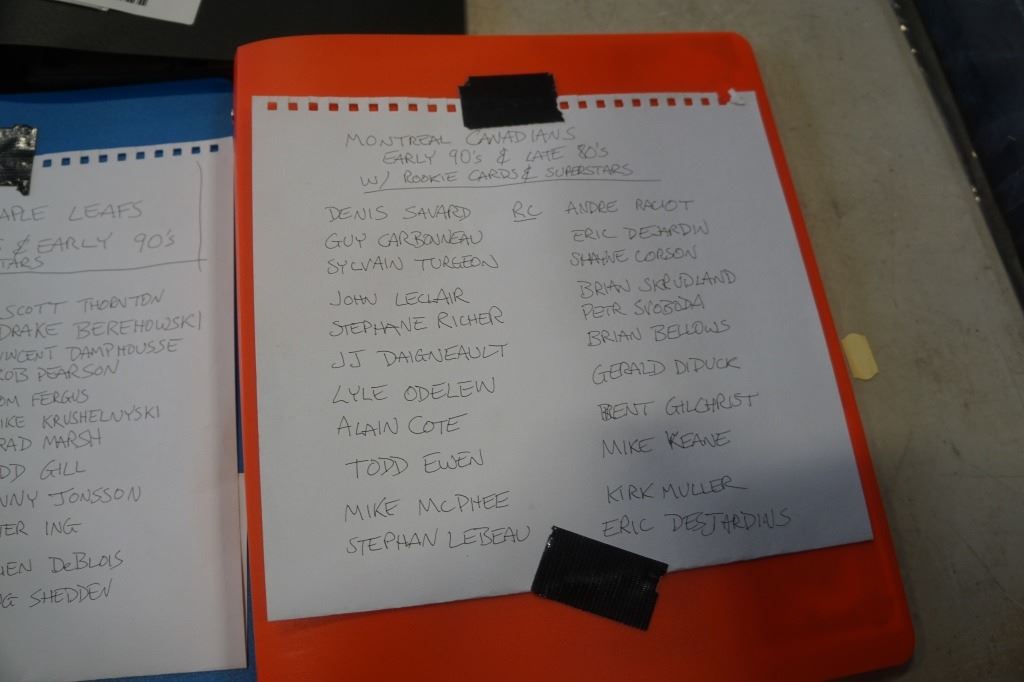 APLE LEAFS
& EARLY 90's
TARS
SCOTT THORNTON
DRAKE BEREHOWSKI
INCENT DAMPHOUSSE
OB PEARSON
OM FERGUS
IKE KRUSHELNYSKI
RAD MARSH
DD GILL
NNY JONSSON
TER ING
IEN DeBLOIS
G SHEDDEN
MONTREAL CANADIANS
EARLY 90's & LATE 80's
W/ ROOKIE CARDS & SUPERSTARS
DENIS SAVARD
GUY CARBONNEAU
SYLVAIN TURGEON
JOHN LECLAIR
STEPHANE RICHER
JJ DAIGNEAULT
LYLE ODELEIN
ALAIN COTE
TODD EWEN
MIKE MCPHEE
STEPHAN LEBEAU
RC ANDRE RACIOT
ERIC DESARDIN
SHAYNE CORSON
BRIAN SKRUDLAND
PETR SVOBODA
BRIAN BELLOWS
GERALD DIDUCK
BENT GILCHRIST
MIKE KEANE
KIRK MULLER
ERIC DESJARDINS